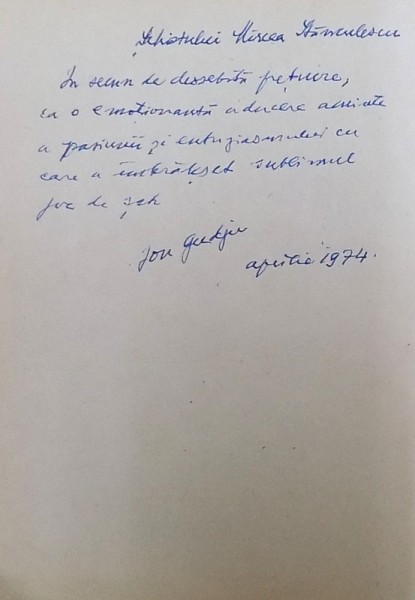 Șahistului Mircea Stănculescu
În semn de deosebită prețuire,
ca o emoționantă aducere aminte
a pasiunii și entuziasmului cu
care a îmbrățișat sublimul
joc de șah
Ion Gudju
aprilie 1974.